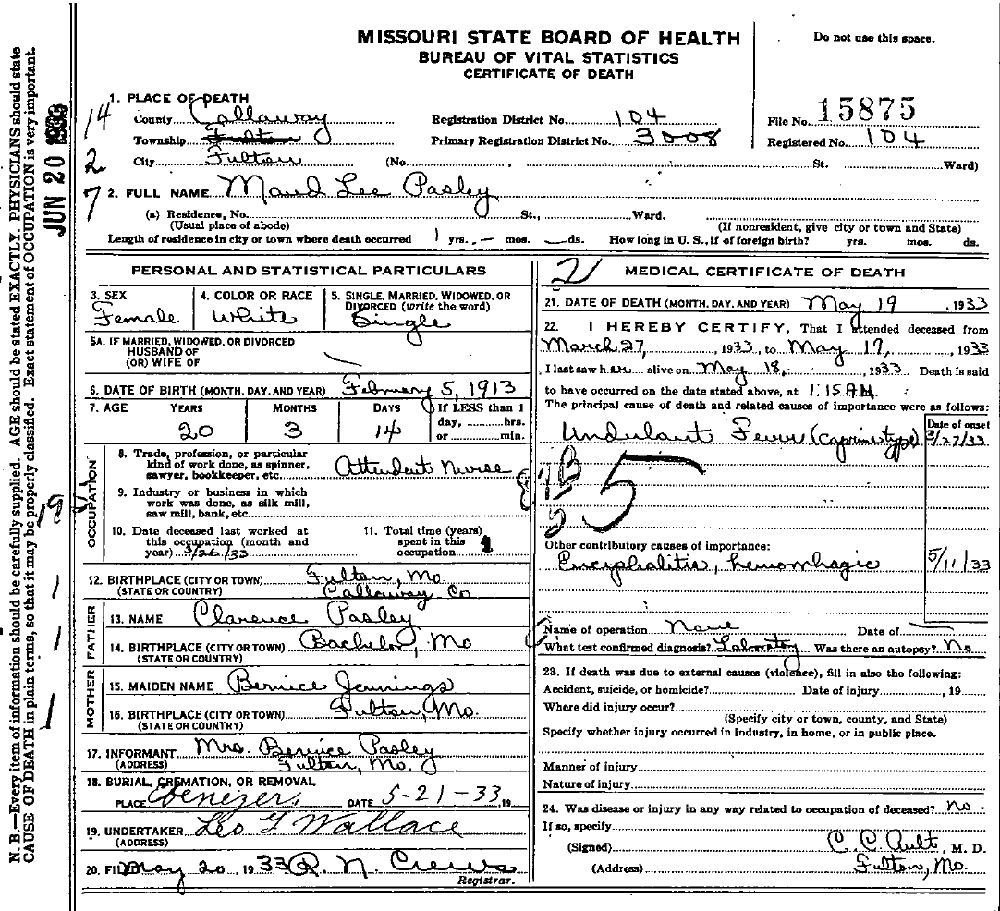 MISSOURI STATE BOARD OF HEALTH
BUREAU OF VITAL STATISTICS
CERTIFICATE OF DEATH
Do not use this space.
N. B.—Every item of information should be carefully supplied. AGE should be stated EXACTLY. PHYSICIANS should state
CAUSE OF DEATH in plain terms, so that it may be properly classified. Exact statement of OCCUPATION is very important.
JUN 20 1933
14
2
7
1. PLACE OF DEATH
County Callaway
Township Fulton
City Fulton (No. St. Ward)
Registration District No. 104
Primary Registration District No. 3008
File No. 15875
Registered No. 104
2. FULL NAME Maud Lee Pasley
(a) Residence, No. St., Ward.
(Usual place of abode) (If nonresident, give city or town and State)
Length of residence in city or town where death occurred 1 yrs. – mos. — ds. How long in U. S., if of foreign birth? yrs. mos. ds.
PERSONAL AND STATISTICAL PARTICULARS
3. SEX
Female
4. COLOR OR RACE
White
5. SINGLE, MARRIED, WIDOWED, OR
DIVORCED (write the word)
Single
5A. IF MARRIED, WIDOWED, OR DIVORCED
HUSBAND OF
(OR) WIFE OF
6. DATE OF BIRTH (MONTH, DAY, AND YEAR) February 5, 1913
7. AGE YEARS MONTHS DAYS If LESS than 1
day, hrs.
or min.
20 3 14
OCCUPATION
8. Trade, profession, or particular
kind of work done, as spinner,
sawyer, bookkeeper, etc. Attendant Nurse
9. Industry or business in which
work was done, as silk mill,
saw mill, bank, etc.
10. Date deceased last worked at
this occupation (month and
year) 3/26/33
11. Total time (years)
spent in this
occupation 1
12. BIRTHPLACE (CITY OR TOWN) Fulton, Mo.
(STATE OR COUNTRY) Callaway Co
FATHER
13. NAME Clarence Pasley
14. BIRTHPLACE (CITY OR TOWN) Bachelor, Mo
(STATE OR COUNTRY)
MOTHER
15. MAIDEN NAME Bernice Jennings
16. BIRTHPLACE (CITY OR TOWN) Fulton, Mo.
(STATE OR COUNTRY)
17. INFORMANT Mrs. Bernice Pasley
(ADDRESS) Fulton, Mo.
18. BURIAL, CREMATION, OR REMOVAL
PLACE Ebenezer DATE 5-21-33, 19
19. UNDERTAKER Leo F Wallace
(ADDRESS)
20. FILED May 20, 1933 R. N. Crews
Registrar.
2
MEDICAL CERTIFICATE OF DEATH
21. DATE OF DEATH (MONTH, DAY, AND YEAR) May 19, 1933
22. I HEREBY CERTIFY, That I attended deceased from
March 27, 1933, to May 19, 1933
I last saw her alive on May 18, 1933 Death is said
to have occurred on the date stated above, at 1:15 A.M.
The principal cause of death and related causes of importance were as follows:
Date of onset
Undulant Fever (caprine type) 3/27/33
5
Other contributory causes of importance:
Encephalitis, hemorrhagic 5/11/33
Name of operation None Date of
What test confirmed diagnosis? Laboratory Was there an autopsy? No
23. If death was due to external causes (violence), fill in also the following:
Accident, suicide, or homicide? Date of injury , 19
Where did injury occur?
(Specify city or town, county, and State)
Specify whether injury occurred in industry, in home, or in public place.
Manner of injury
Nature of injury
24. Was disease or injury in any way related to occupation of deceased? no
If so, specify
(Signed) C. C. Ault, M. D.
(Address) Fulton, Mo.